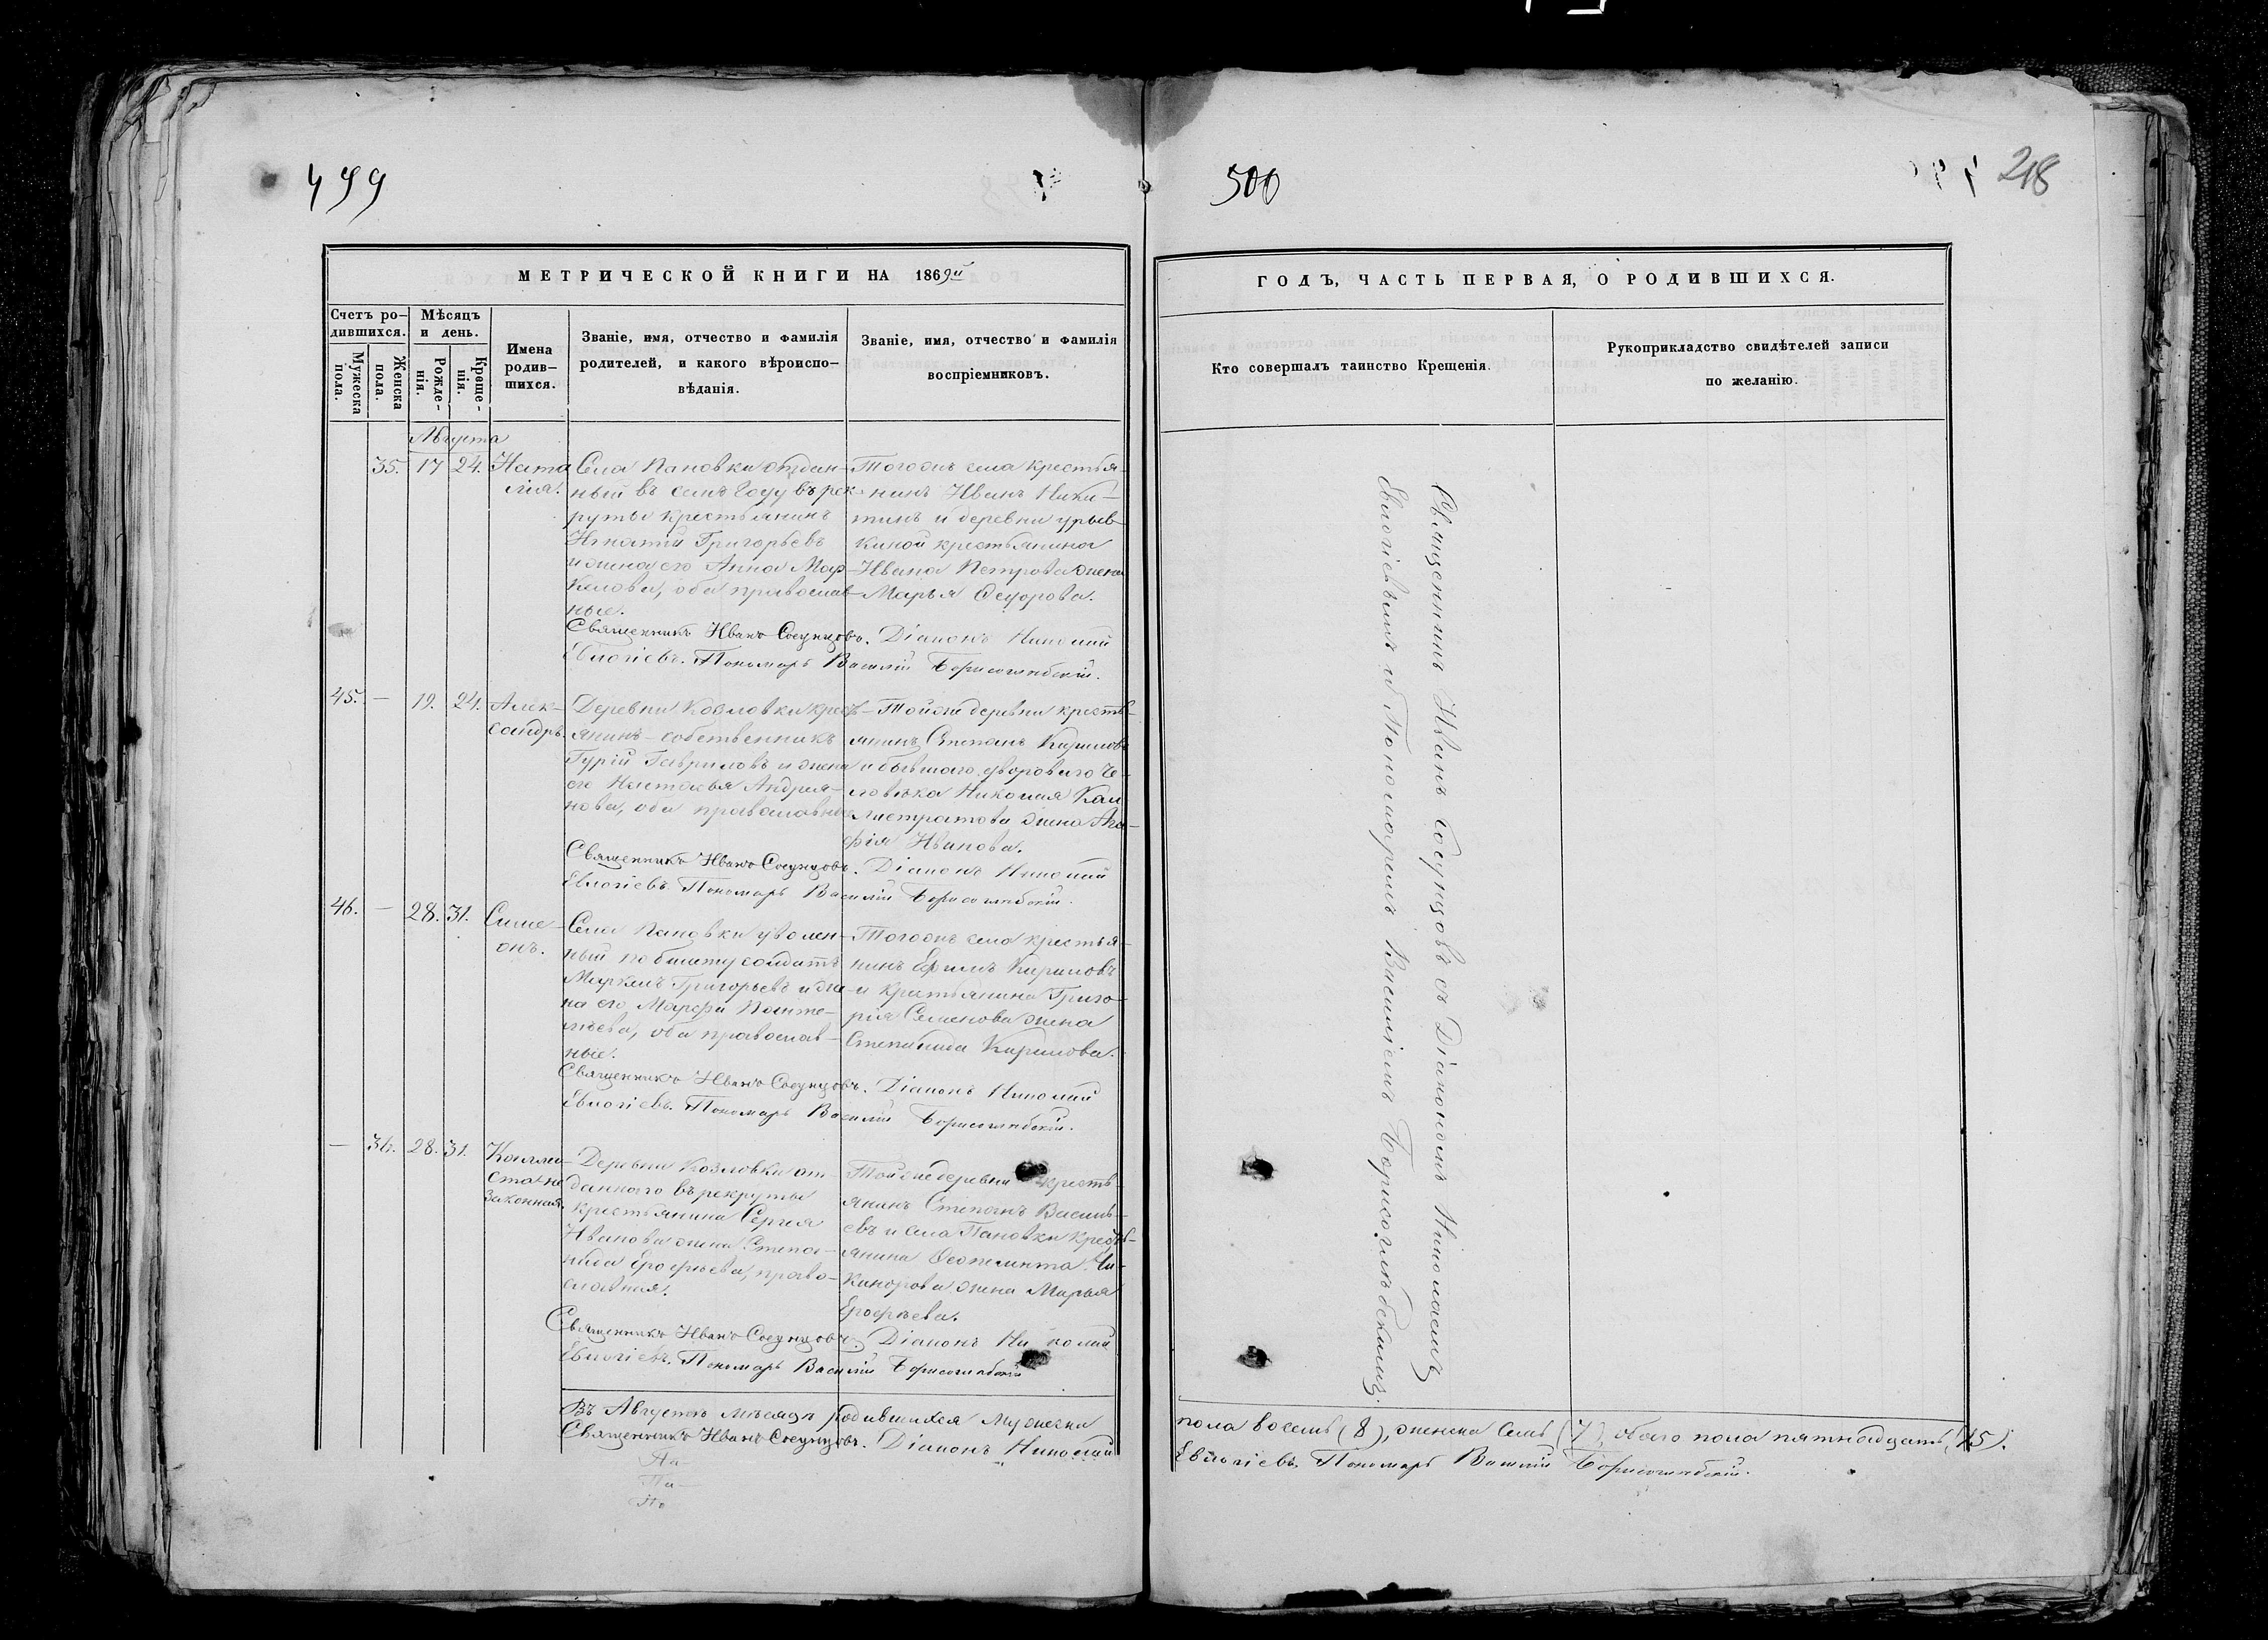 499
500
218
МЕТРИЧЕСКОЙ КНИГИ НА 1869й
Счетъ ро-
дившихся.
Мужеска
пола.
Женска
пола.
Мѣсяцъ
и день.
Рожде-
нія.
Креще-
нія.
Имена
родив-
шихся.
Званіе, имя, отчество и фамилія
родителей, и какого вѣроиспо-
вѣданія.
Званіе, имя, отчество и фамилія
воспріемниковъ.
Августа
35. 17 24. Ната
лія.
Села Пановки отдан-
ный въ семъ году въ рек-
руты крестьянинъ
Игнатій Григорьевъ
и жена его Анна Мар-
келова, оба православ-
ные.
Тогожъ села крестья-
нинъ Иванъ Ники-
тинъ и деревни Урьев-
киной крестьянина
Ивана Петрова жена
Марья Ѳедорова.
Священникъ Иванъ Сосунцовъ. Діаконъ Николай
Евлогіевъ. Пономарь Василій Борисоглѣбскій.
45. — 19. 24. Алек-
сандръ.
Деревни Козловки кресть-
янинъ-собственникъ
Гурій Гавриловъ и жена
его Настасья Андрія-
нова, оба православные
Тойже деревни кресть-
янинъ Степанъ Кириловъ
и бывшаго двороваго че-
ловѣка Николая Кал
листратова жена Ага-
фія Иванова.
Священникъ Иванъ Сосунцовъ. Діаконъ Николай
Евлогіевъ. Пономарь Василій Борисоглѣбскій.
46. — 28. 31. Симе-
онъ.
Села Пановки уволен-
ный по билету солдатъ
Маркелъ Григорьевъ и же-
на его Марфа Панте-
лѣева, оба православ-
ные.
Тогожъ села крестья-
нинъ Ефимъ Кириловъ
и крестьянина Григо-
рія Семенова жена
Степанида Кирилова.
Священникъ Иванъ Сосунцовъ. Діаконъ Николай
Евлогіевъ. Пономарь Василій Борисоглѣбскій.
— 36. 28. 31.
законная.
Деревни Козловки от-
даннаго въ рекруты
крестьянина Сергея
Иванова жена Степа-
нида Ерофѣева, право-
славная.
Тойже деревни кресть-
янинъ Степанъ Василь-
евъ и села Пановки кресть-
янина Ѳеоктиста Ни-
канорова жена Марья
Ерофѣева.
Священникъ Иванъ Сосунцовъ. Діаконъ Николай
Евлогіевъ. Пономарь Василій Борисоглѣбскій
Въ Августѣ мѣсяцѣ родившихся мужеска
Священникъ Иванъ Сосунцовъ. Діаконъ Николай
ГОДЪ, ЧАСТЬ ПЕРВАЯ, О РОДИВШИХСЯ.
Кто совершалъ таинство Крещенія.
Рукоприкладство свидѣтелей записи
по желанію.
Священникъ Иванъ Сосунцовъ съ Діакономъ Николаемъ
Евлогіевымъ и Пономаремъ Василіемъ Борисоглѣбскимъ.
пола восемь (8), женска семь (7), обаго пола пятнадцать (15).
Евлогіевъ. Пономарь Василій Борисоглѣбскій.